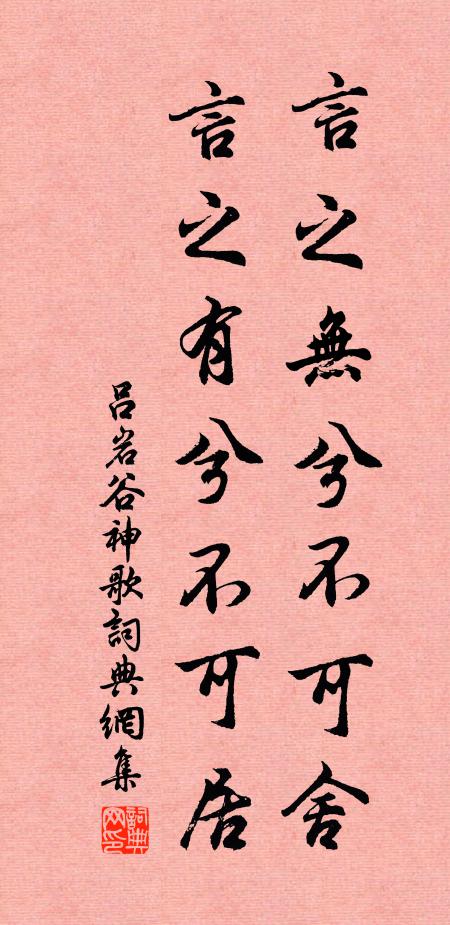 言之無兮不可舍
言之有兮不可居
吕岩谷神歌詞典網集
詞典網印